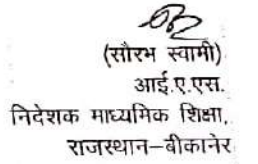 (सौरभ स्वामी)
आई.ए.एस.
निदेशक माध्यमिक शिक्षा,
राजस्थान–बीकानेर